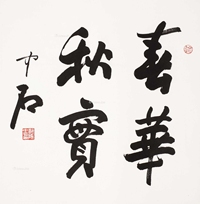 春華
秋實
中石